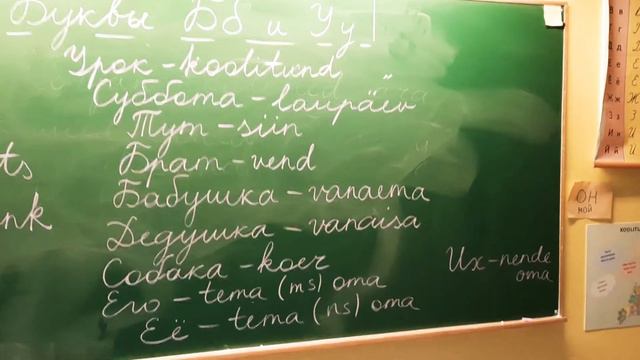 Буквы Бб и Уу
Урок - koolitund
Суббота - laupäev
Тут - siin
Брат - vend
Бабушка - vanaema
Дедушка - vanaisa
Собака - koer
Его - tema (ms) oma
Её - tema (ns) oma
Их - nende
oma
ts
nk
ОН
МОЙ